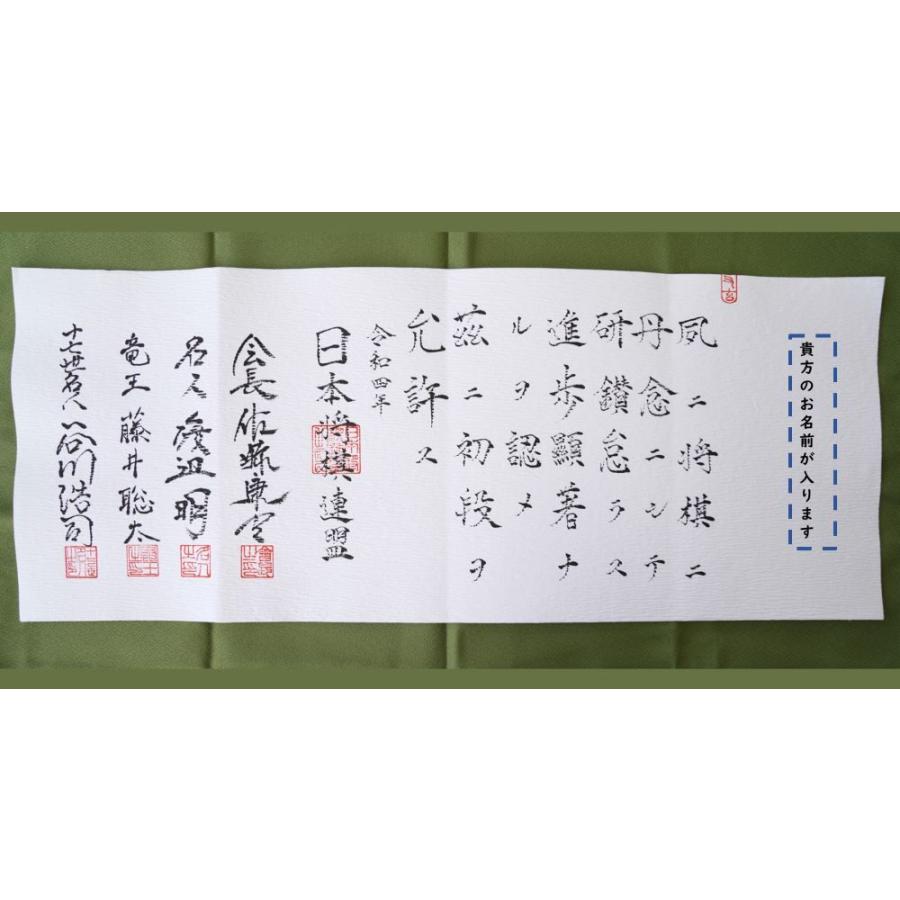 貴方のお名前が入ります
夙ニ将棋ニ
丹念ニシテ
研鑚怠ラス
進歩顯著ナ
ルヲ認メ
茲ニ初段ヲ
允許ス
令和四年
日本将棋連盟
会長佐藤康光
名人渡辺明
竜王藤井聡太
十七世名人谷川浩司